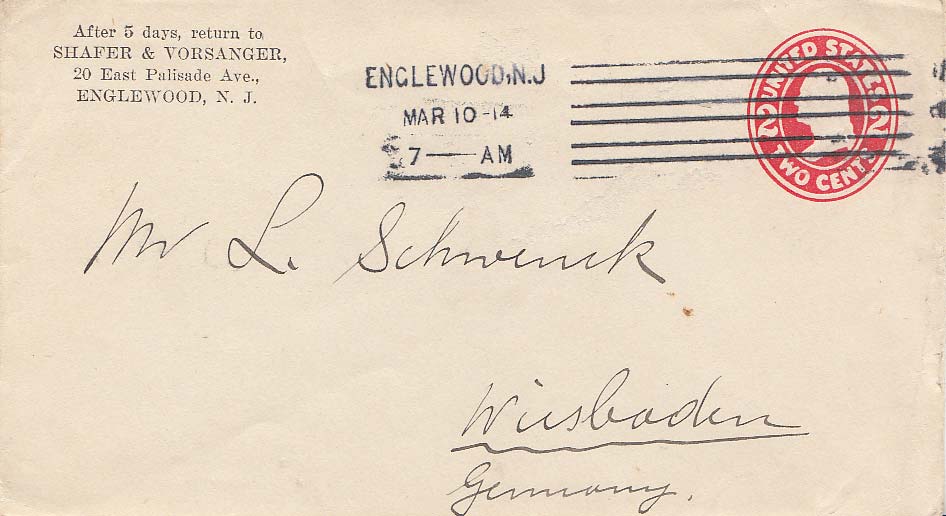 After 5 days, return to
SHAFER & VORSANGER,
20 East Palisade Ave.,
ENGLEWOOD, N. J.
ENGLEWOOD, N.J
MAR 10 -14
7 — AM
UNITED STATES
2 2
TWO CENTS
Mr L. Schwenck
Wiesbaden
Germany.